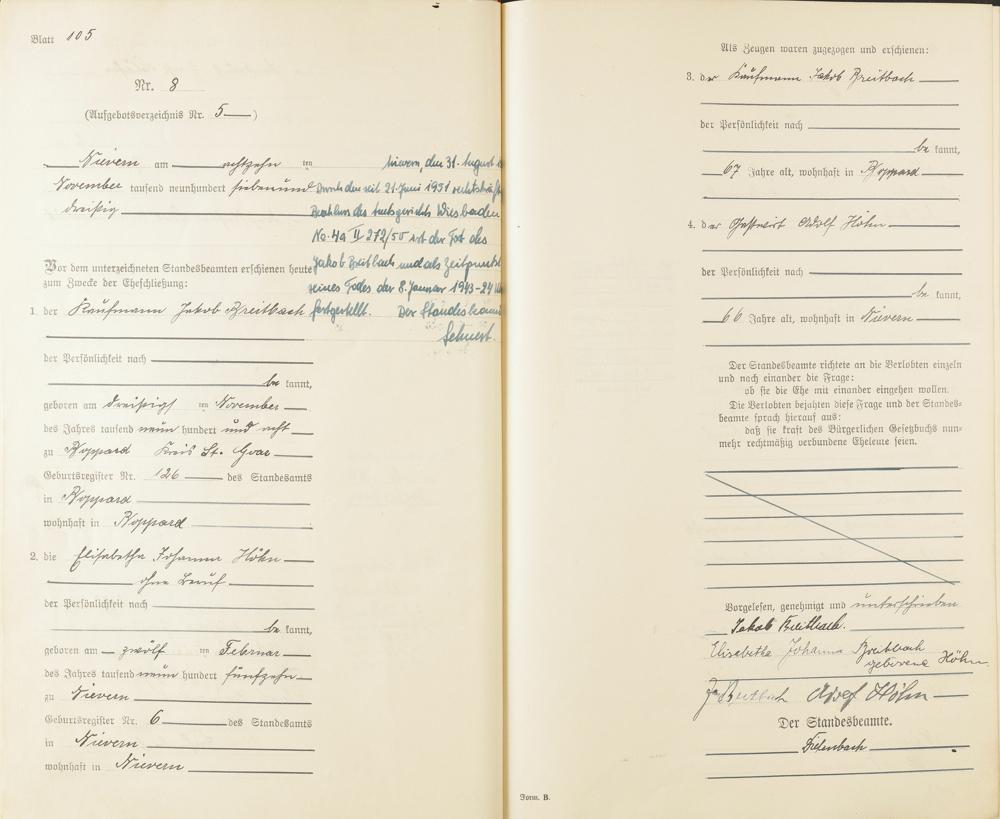 Blatt 105
Nr. 8
(Aufgebotsverzeichnis Nr. 5)
Nievern am achtzehn ten
November tausend neunhundert siebenund
dreißig
Nievern, den 31. August
Durch den seit 21. Juni 1951 rechtskräft
Beschluss des Amtsgerichts Wiesbaden
No. 4a II 272/50 ist der Tod des
Jakob Breitbach und als Zeitpunkt
seines Todes der 8. Januar 1943 - 24 Uhr
festgestellt. Der Standesbeamte
Vor dem unterzeichneten Standesbeamten erschienen heute
zum Zwecke der Eheschließung:
1. der Kaufmann Jakob Breitbach
der Persönlichkeit nach
be kannt,
geboren am dreißigst ten November
des Jahres tausend neun hundert und acht
zu Boppard Kreis St. Goar
Geburtsregister Nr. 126 des Standesamts
in Boppard
wohnhaft in Boppard
2. die Elisabetha Johanna Höhn
ohne Beruf
der Persönlichkeit nach
be kannt,
geboren am zwölf ten Februar
des Jahres tausend neun hundert fünfzehn
zu Nievern
Geburtsregister Nr. 6 des Standesamts
in Nievern
wohnhaft in Nievern
Als Zeugen waren zugezogen und erschienen:
3. der Kaufmann Jakob Breitbach
der Persönlichkeit nach
be kannt,
67 Jahre alt, wohnhaft in Boppard
4. der Gastwirt Adolf Höhn
der Persönlichkeit nach
be kannt,
66 Jahre alt, wohnhaft in Nievern
Der Standesbeamte richtete an die Verlobten einzeln
und nach einander die Frage:
ob sie die Ehe mit einander eingehen wollen.
Die Verlobten bejahten diese Frage und der Standes-
beamte sprach hierauf aus:
daß sie kraft des Bürgerlichen Gesetzbuchs nun-
mehr rechtmäßig verbundene Eheleute seien.
Vorgelesen, genehmigt und unterschrieben
Jakob Breitbach.
Elisabetha Johanna Breitbach
geborene Höhn
Breitbach Adolf Höhn
Der Standesbeamte.
Form. B.